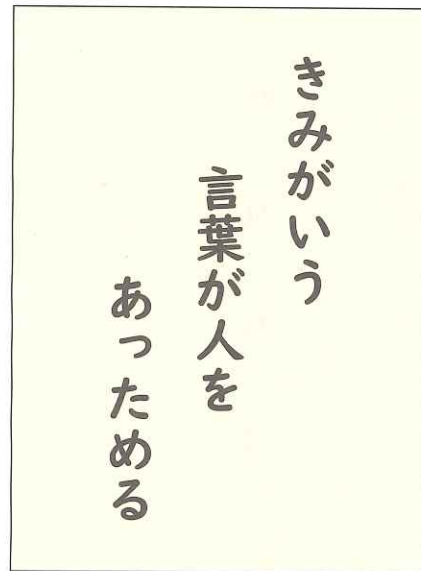 きみがいう
言葉が人を
あっためる